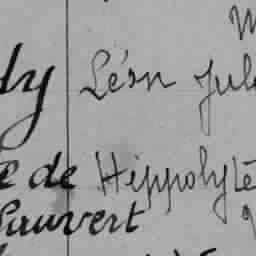 Léon Jul
de Hippolyte
Pauvert